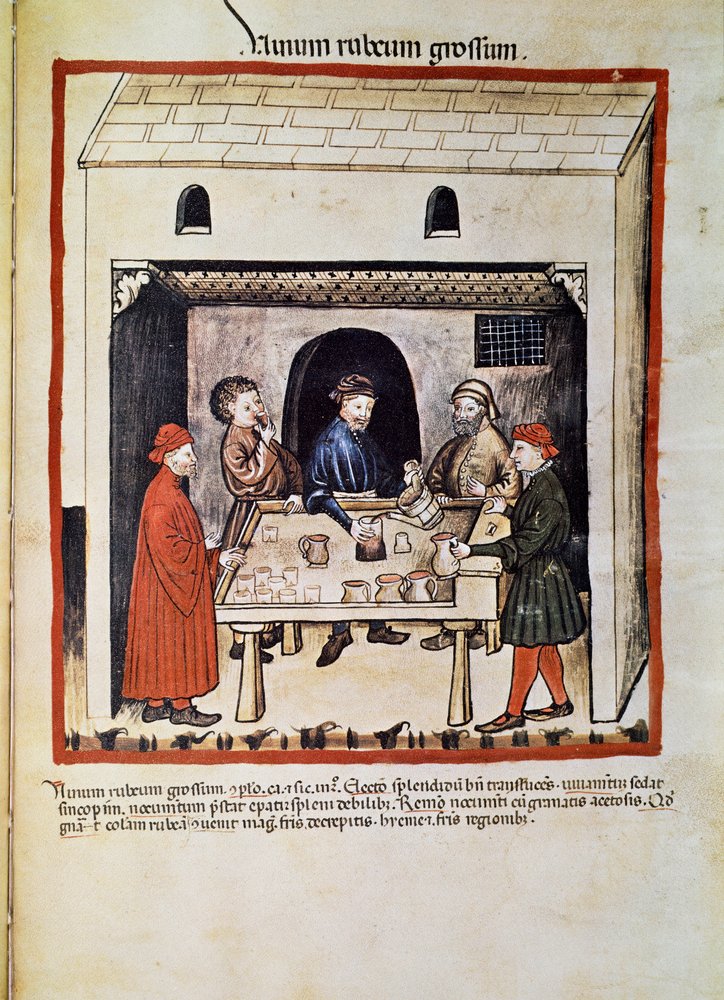 Vinum rubeum grossum.
Vinum rubeum grossum. ꝯplo. ca. ⁊ sic. in 2°. Electō splendidū bn̄ transluces. iuuamtū sedat
sincopim. nocumtum p̄stat epati ⁊ spleni debilibꝫ. Remō nocumti cū granatis acetosis. Qd
gnāt colam rubeā ꝯuenit mag. fris, decrepitis. hyeme ⁊ fris regionibꝫ.